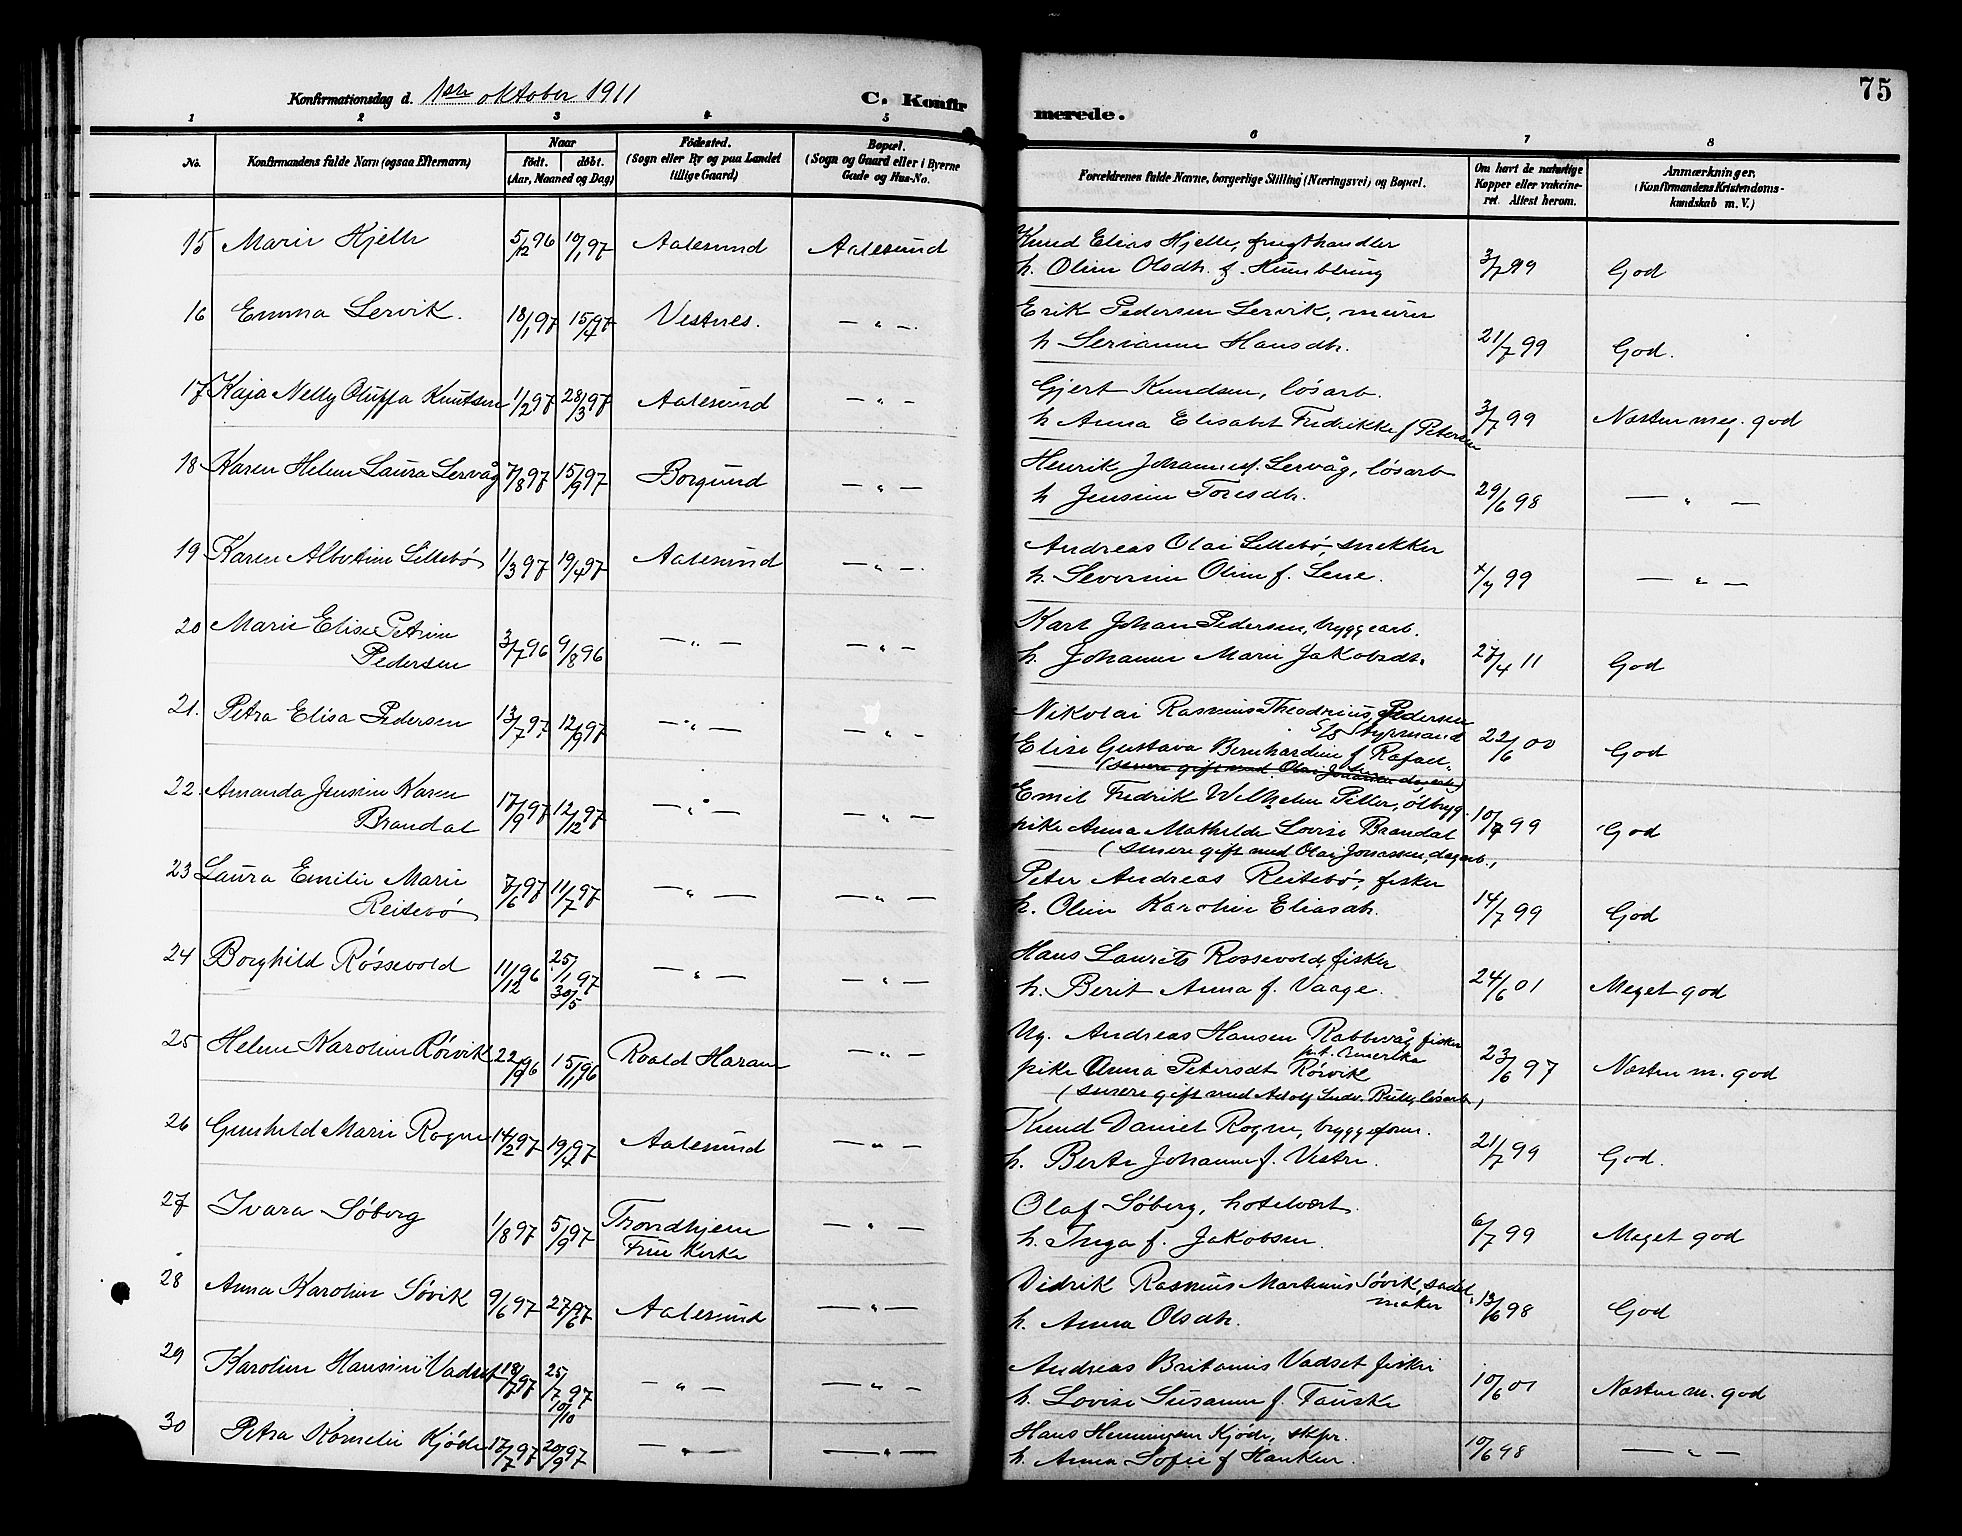 75
Konfirmationsdag d. 1ste oktober 1911
C. Konfirmerede.
1 2 3 4 5 6 7 8
No.
Konfirmandens fulde Navn (ogsaa Efternavn)
Naar
födt. döbt.
(Aar, Maaned og Dag)
Födested.
(Sogn eller By og paa Landet
tillige Gaard)
Bopæl.
(Sogn og Gaard eller i Byerne
Gade og Hus-No.
Forældrenes fulde Navne, borgerlige Stilling (Næringsvei) og Bopæl.
Om havt de naturlige
Kopper eller vakcine-
ret. Attest herom.
Anmærkninger,
(Konfirmandens Kristendoms-
kundskab m. V.)
15 Marie Hjelle 5/12 96 10/1 97 Aalesund Aalesund
Knud Elias Hjelle, frugthandler
h. Oline Olsdtr. f. Humblung 3/7 99 God
16 Emma Lervik. 18/1 97 15/4 97 Vestnes. — " —
Erik Pedersen Lervik, murer
h Serianne Hansdtr. 21/7 99 God.
17 Kaja Nelly Oluffa Knutsen 1/2 97 28/3 97 Aalesund — " —
Gjert Knudsen, løsarb.
h Anna Elisabet Fredrikke f Petersen 3/7 99 Næsten meg. god
18 Karen Helene Laura Lervåg 7/8 97 15/9 97 Borgund — " —
Henrik Johannes. Lervåg, løsarb
h Jensine Toresdtr. 29/6 98 — " —
19 Karen Albertine Sillebø 1/3 97 19/4 97 Aalesund — " —
Andreas Olai Sillebø, snekker
h. Severine Oline f. Lene. 4/7 99 — " —
20 Marie Elise Petrine
Pedersen 3/7 96 9/8 96 — " — — " —
Karl Johan Pedersen, bryggearb.
h. Johanne Marie Jakobsdt. 27/4 11 God
21. Petra Elisa Pedersen 13/7 97 12/9 97 — " — — " —
Nikolai Rasmus Theodrius Pedersen
S/s Styrmand
Elise Gustava Bernhardine f. Rafael- 22/6 00 God
(senere gift med Olai Jonassen dagarb)
22. Amanda Jensine Karen
Brandal 17/9 97 12/12 97 — " — — " —
Emil Fredrik Wilhelm Piller, ølbryg.
pike Anna Mathilde Lovise Brandal 10/7 99 God
(senere gift med Olai Jonassen, dagarb.,
23 Laura Emilie Marie
Reitebø 7/6 97 11/7 97 — " — — " —
Peter Andreas Reitebø, fisker
h. Oline Karoline Eliasdtr. 14/7 99 God
24 Borghild Røssevold 11/12 96 25/1 97 30/5 — " — — " —
Hans Laurits Rossevold, fisker
h. Berit Anna f. Vaage. 24/6 01 Meget god
25 Helene Karoline Rörvik 22/9 96 15/11 96 Roald Haram — " —
Ug. Andreas Hansen Rabbevåg fisker
p.t. Amerika
pike Anna Petersdt Rörvik 23/6 97 Næsten m. god
(senere gift med Adolf Ludv. Ruly, løsarb,
26 Gunhild Marie Rogne 14/2 97 19/4 97 Aalesund — " —
Knud Daniel Rogne, bryggeform.
h. Berte Johanne f. Vestre. 21/7 99 God.
27 Ivara Søberg 1/8 97 5/9 97 Trondhjem
Frue Kirke — " —
Olaf Søberg, hotelvært
h. Inga f. Jakobsen. 6/7 99 Meget god
28 Anna Karoline Søvik 9/6 97 27/6 97 Aalesund — " —
Didrik Rasmus Martinus Søvik, sadel-
maker
h. Anna Olsdtr. 13/6 98 God
29 Karoline Hansine Vadset 18/7 97 25/7 97 10/10 — " — — " —
Andreas Britanus Vadset fisker
h. Lovise Susanne f. Fauske 10/6 01 Næsten m. god
30 Petra Kornelie Kjøde 17/7 97 20/9 97 — " — — " —
Hans Henningsen Kjøde, skpr.
h. Anna Sofie f Hanken. 10/6 98 — " —